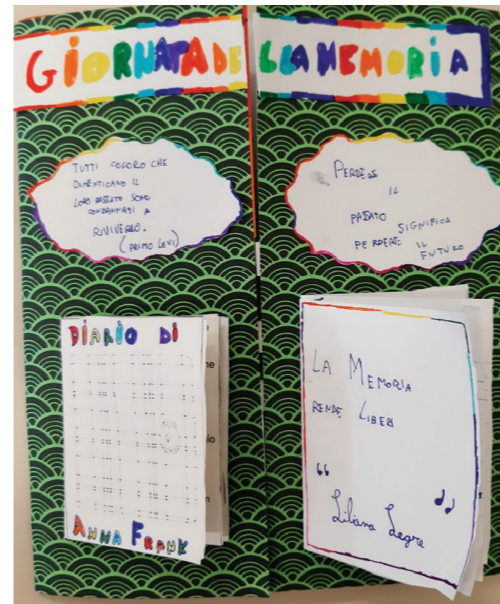 GIORNATA DELLA MEMORIA
TUTTI COLORO CHE
DIMENTICANO IL
LORO PASSATO SONO
CONDANNATI A
RIVIVERLO.
(PRIMO LEVI)
PERDERE
IL
PASSATO
SIGNIFICA
PERDERE IL
FUTURO
DIARIO DI
ANNA FRANK
LA MEMORIA
RENDE LIBERI
“
Liliana Segre